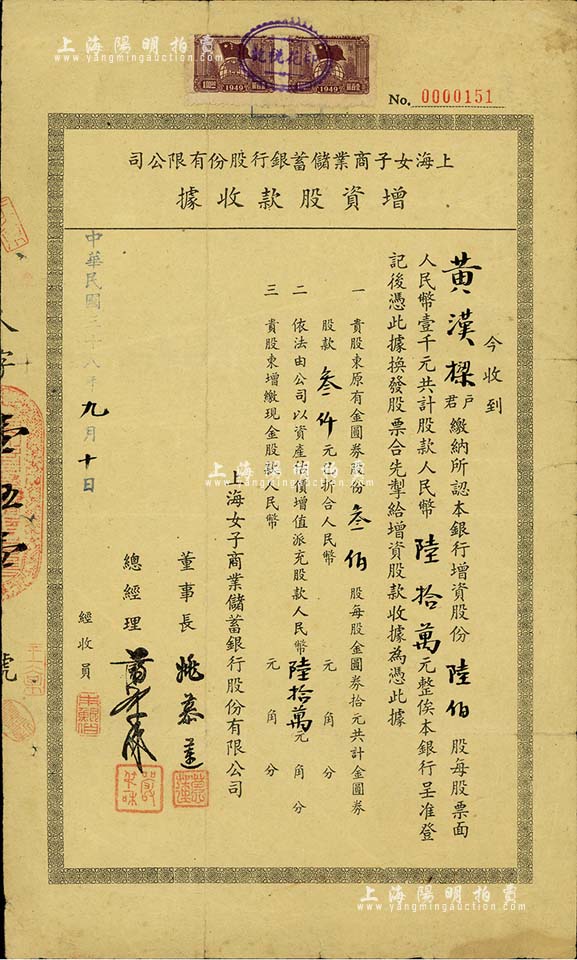 上海陽明拍賣
www.yangmingauction.com
印花稅訖
1949
1949
No. 0000151
司公限有份股行銀蓄儲業商子女海上
據收款股資增
今收到
黃漢樑 戶君 繳納所認本銀行增資股份 陸伯 股每股票面
人民幣壹千元共計股款人民幣 陸拾萬 元整俟本銀行呈准登
記後憑此據換發股票合先掣給增資股款收據為憑此據
一 貴股東原有金圓券股份 叁伯 股每股金圓券拾元共計金圓券
股款 叁仟 元已折合人民幣 元 角 分
二 依法由公司以資產估價增值派充股款人民幣 陸拾萬 元 角 分
三 貴股東增繳現金股款人民幣 元 角 分
上海女子商業儲蓄銀行股份有限公司
董事長 姚慕蓮
總經理
經收員
中華民國三十八年 九月十日
字 壹五壹 號
上海陽明拍賣
www.yangmingauction.com
上海陽明拍賣
www.yangmingauction.com